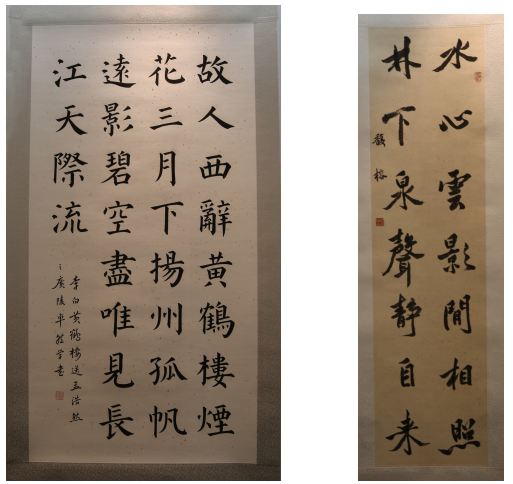 故人西辭黄鶴樓煙
花三月下揚州孤帆
遠影碧空盡唯見長
江天際流
李白黄鶴樓送孟浩然
之廣陵
水心雲影閒相照
林下泉聲静自来